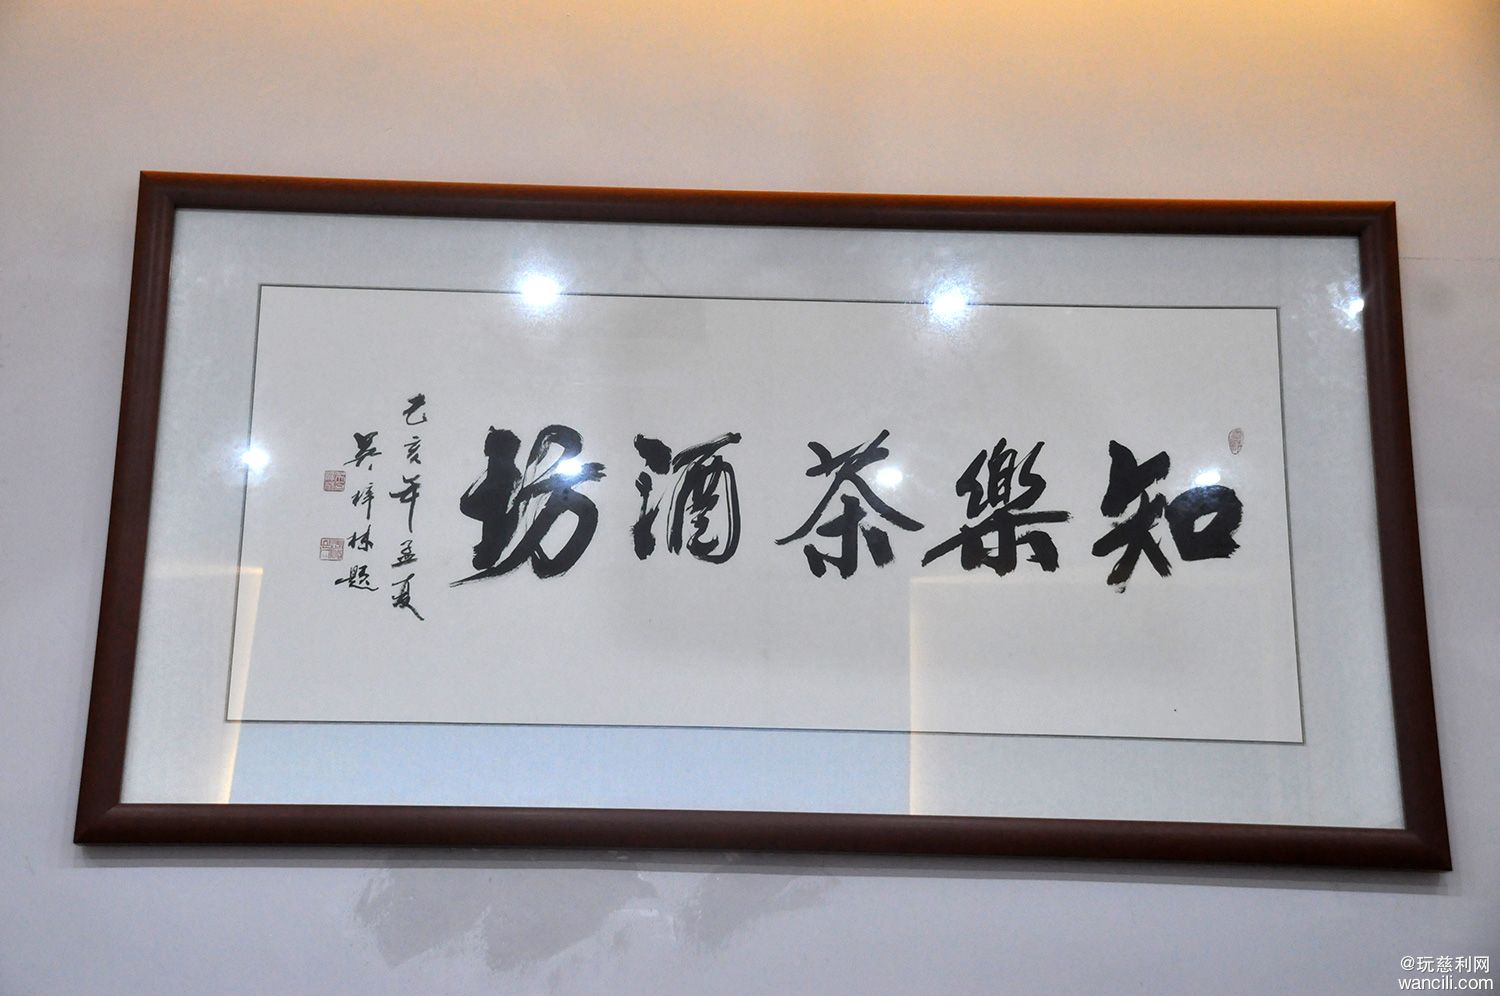 知樂茶酒坊
己亥年孟夏
吴梓林题
@玩慈利网
wancili.com